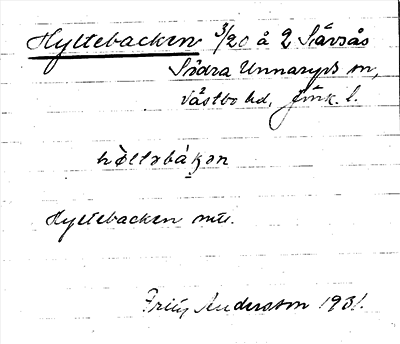 Hyltebacken 3/20 å 2 Sävsås
Södra Unnaryds sn,
Västbo hd, Jönk. l.
hølləbákən
Hyltebacken mtl.
Fritz Andersson 1931.